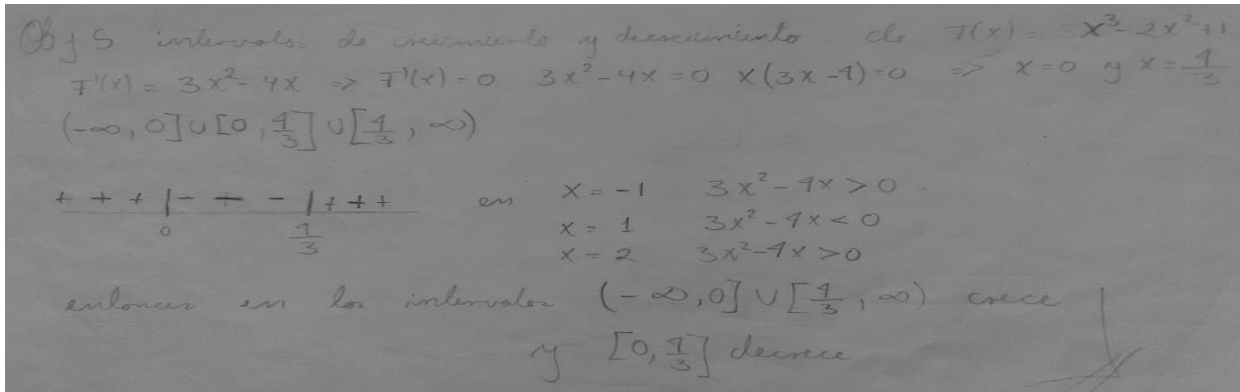 Obj 5 intervalos de crecimiento y decrecimiento de F(x) = x³-2x²+1
F'(x) = 3x²-4x => F'(x)=0 3x²-4x=0 x(3x-4)=0 => x=0 y x=4/3
(-∞, 0]∪[0, 4/3]∪[4/3, ∞)
+ + + | - - - | + + + en x = -1 3x²-4x>0
0 4/3 x = 1 3x²-4x<0
x = 2 3x²-4x>0
entonces en los intervalos (-∞,0] ∪ [4/3, ∞) crece
y [0, 4/3] decrece